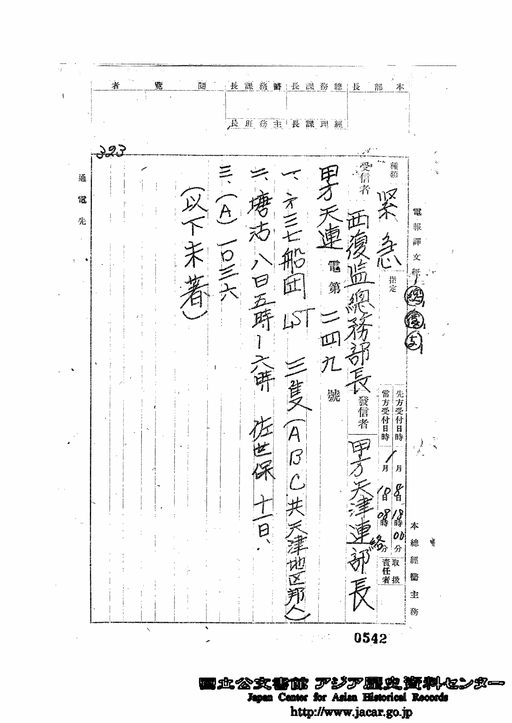 本部長 總務課長 醫務課長 閲覽者
經理課長 主務班長
323
電報譯文
本總經醫主務
種類 緊急 指定
先方受付日時 1月8日18時00分
當方受付日時 月18日08時 分
取扱責任者
受信者 西復監總務部長
發信者 甲方天津連絡部長
甲方天連電第二四九號
一、方三七船団 LST 三隻(ABC共天津地区邦人)
二、塘沽 八日五時-六時 佐世保 十一日、
三、(A)一〇三六
(以下未着)
通電先
0542
國立公文書館 アジア歴史資料センター
Japan Center for Asian Historical Records
http://www.jacar.go.jp